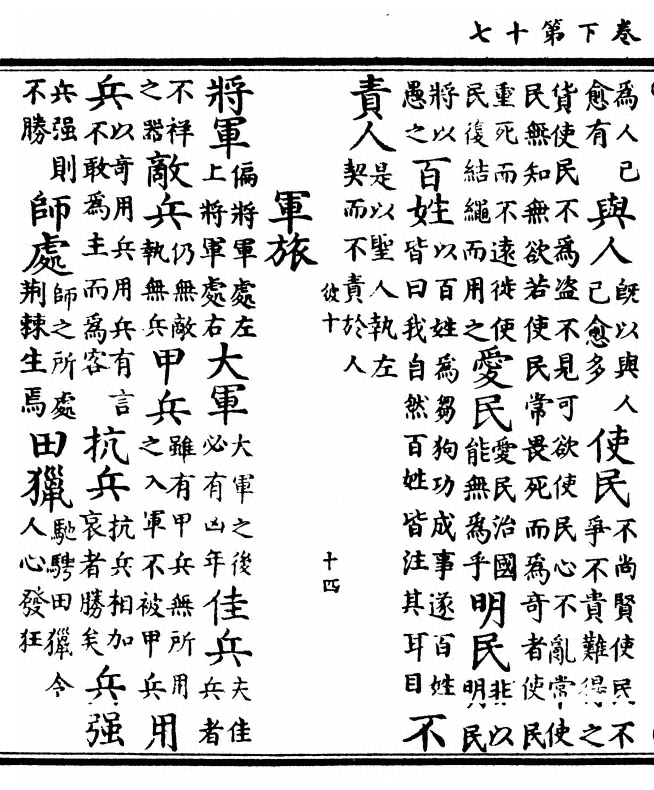 卷下第十七
為人己愈有與人旣以與人己愈多使民不尚賢使民不爭不貴難得之
貨使民不為盗不見可欲使民心不亂常使民無知無欲若使民常畏死而為奇者使民
重死而不遠徙使民復結繩而用之愛民愛民治國能無為乎明民非以明民
將以愚之百姓以百姓為芻狗功成事遂百姓皆曰我自然百姓皆注其耳目不
責人是以聖人執左契而不責於人
彼十 十四
軍旅
將軍偏將軍處左上將軍處右大軍大軍之後必有凶年佳兵夫佳兵者
不祥之器敵兵仍無敵執無兵甲兵雖有甲兵無所用之入軍不被甲兵用
兵以奇用兵用兵有言不敢為主而為客抗兵抗兵相加哀者勝矣兵强
兵强則不勝師處師之所處荆棘生焉田獵馳騁田獵令人心發狂